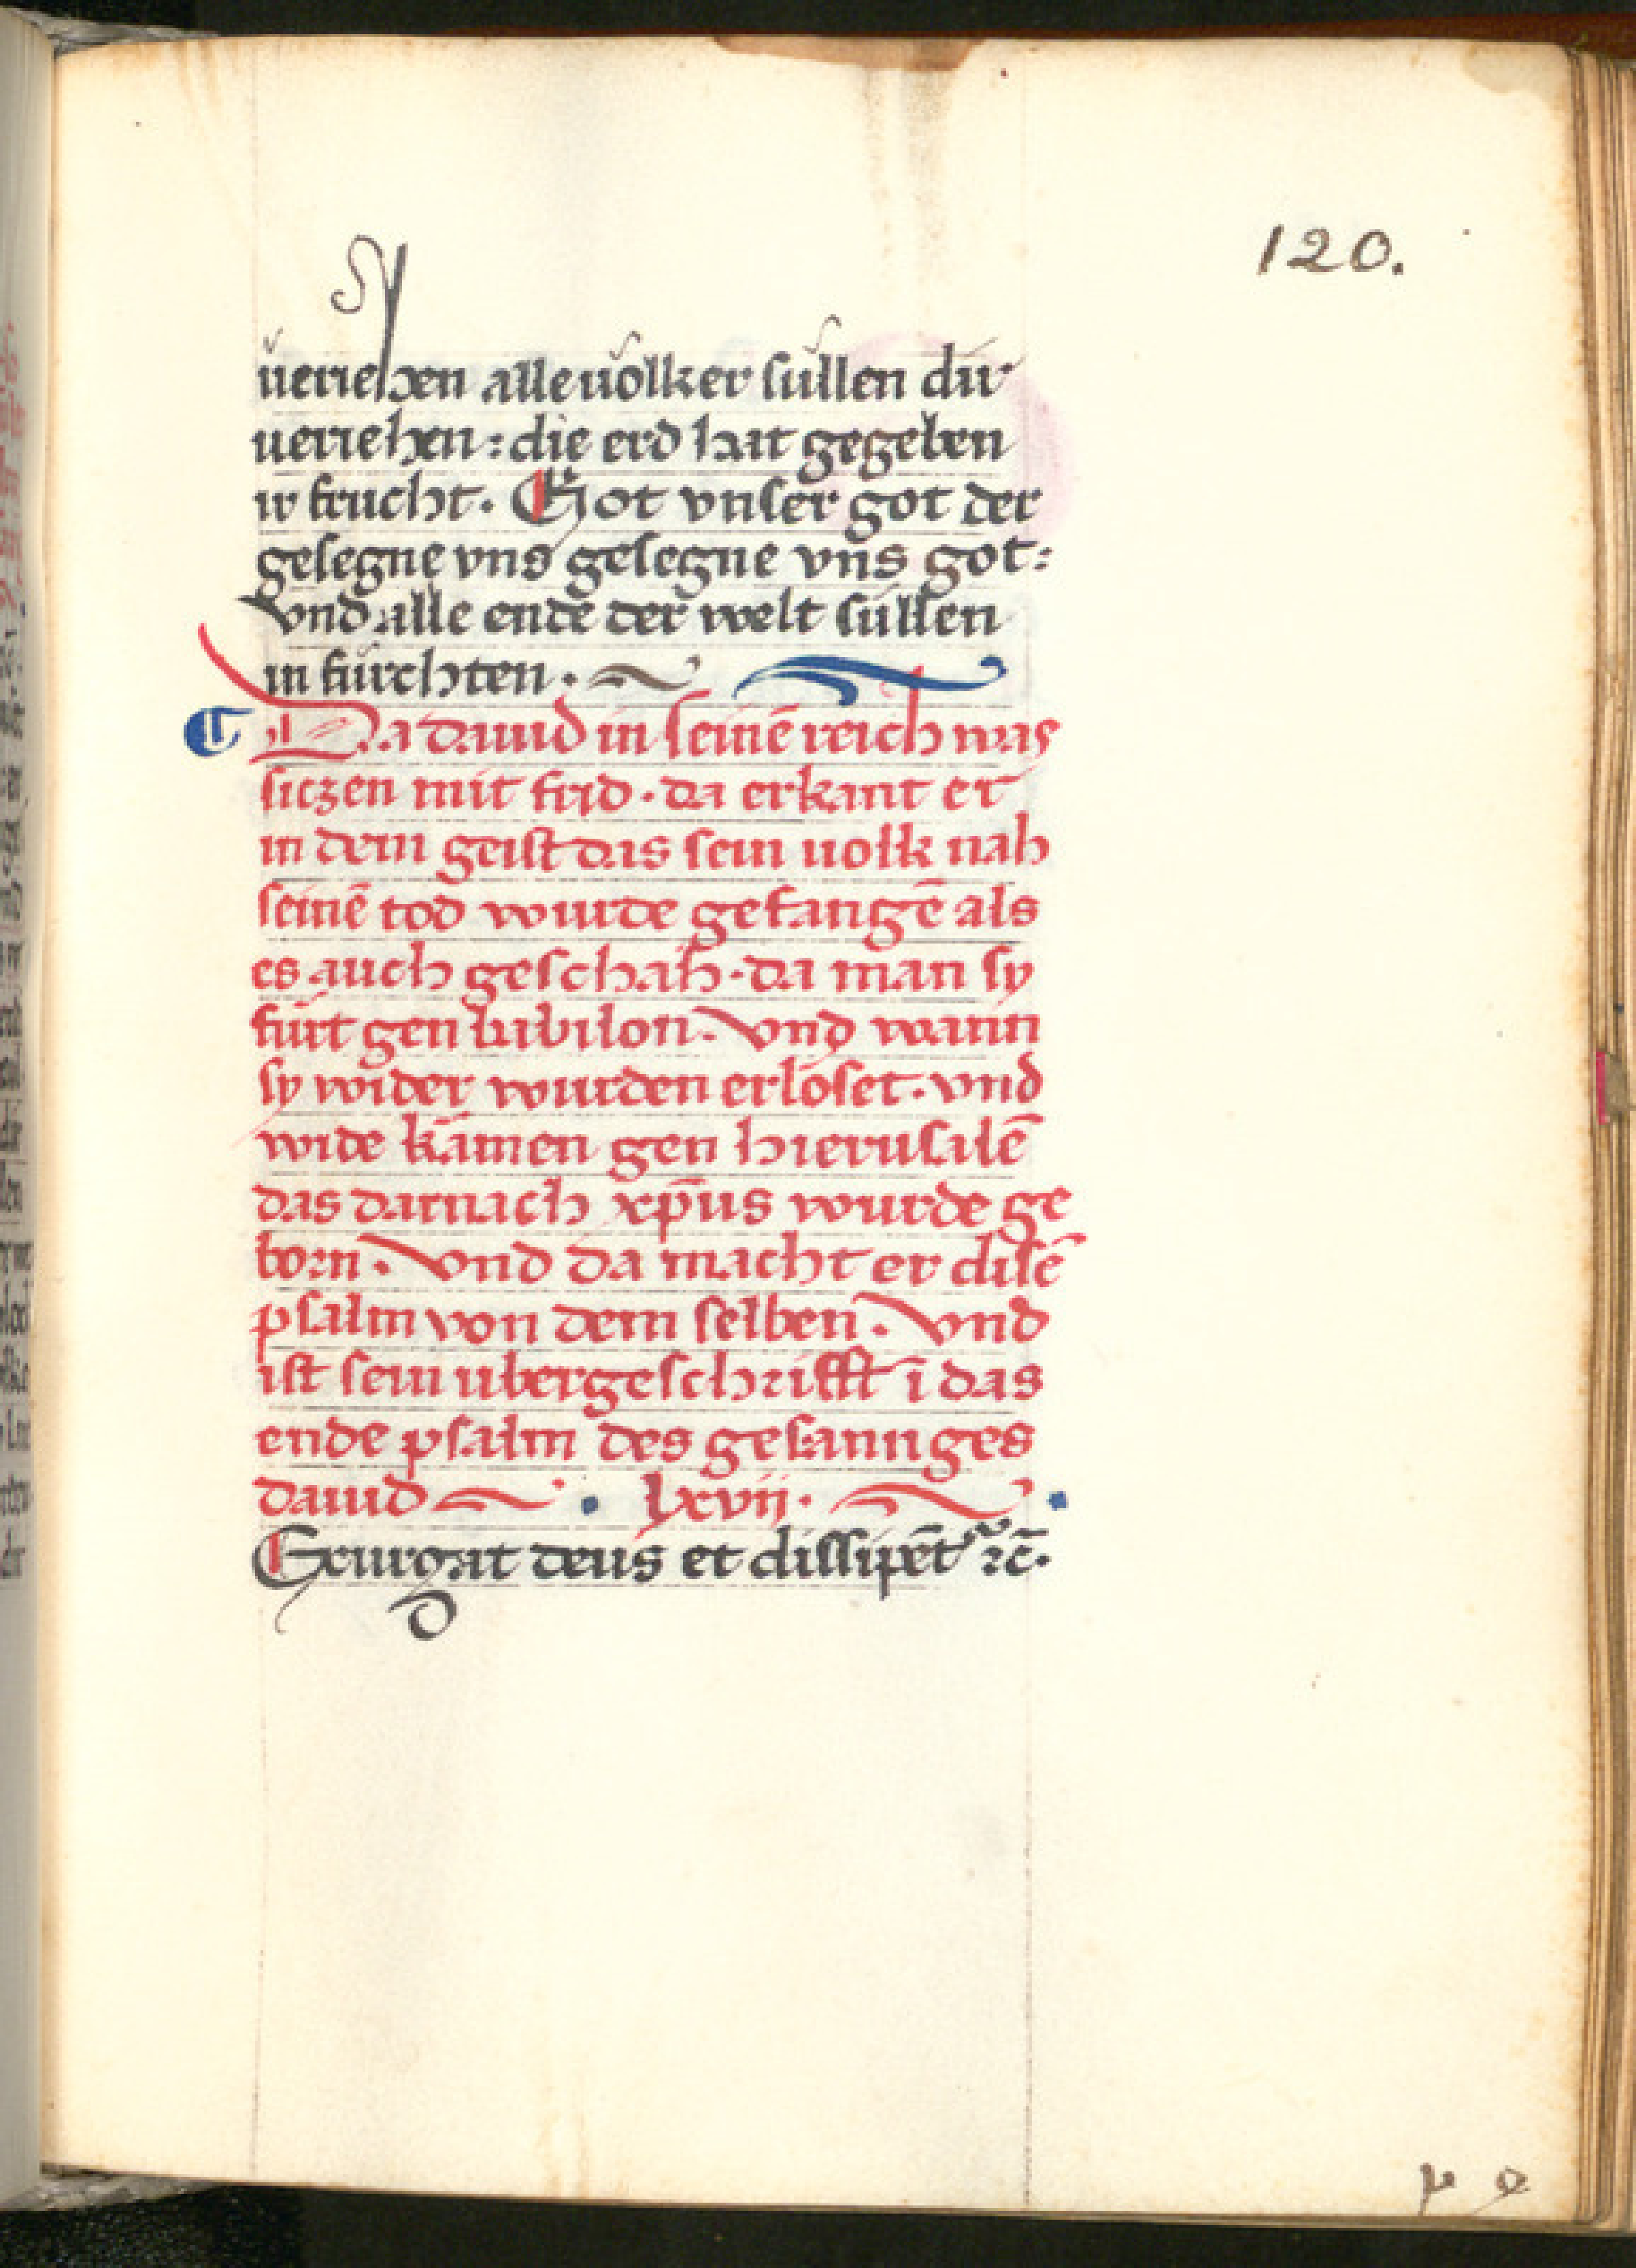 120.
veriehen alle völker süllen dir
veriehen : die erd hat gegeben
ir frucht . Got vnser got der
gesegne vns gesegne vns got :
vnd alle ende der welt süllen
in fürchten .
Da dauid in seinē reich was
siczen mit frid . da erkant er
in dem geist das sein uolk nah
seinē tod wurde gefangē als
es auch geschah . da man sy
fürt gen babilon . vnd wann
sy wider wurden erlöset . vnd
wide kāmen gen hierusalē
das darnach xp̄us wurde ge
born . vnd da macht er disē
psalm von dem selben . vnd
ist sein ubergeschrifft ī das
ende psalm des gesannges
dauid . lxvii .
Exurgat deus et dissipēt ꝛc̄ .